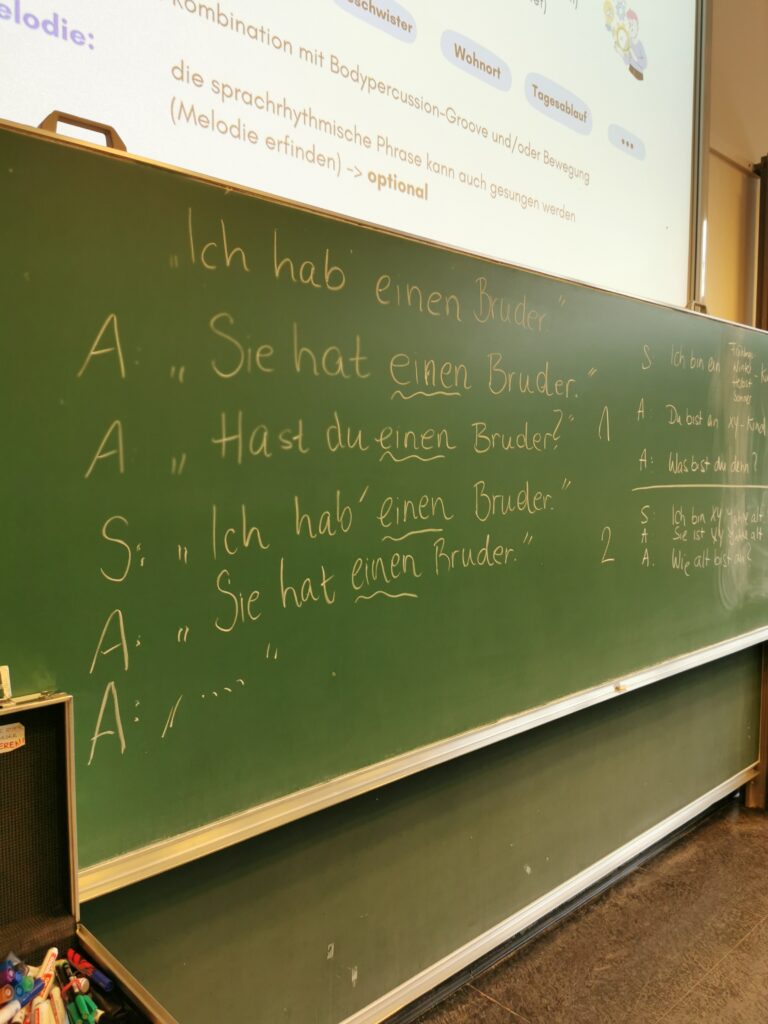 elodie:
schwister
Wohnort
Tagesablauf
...
Kombination mit Bodypercussion-Groove und/oder Bewegung
die sprachrhythmische Phrase kann auch gesungen werden
(Melodie erfinden) -> optional
„Ich hab' einen Bruder."
A: „Sie hat einen Bruder."
A „Hast du einen Bruder?"
S: „Ich hab' einen Bruder."
A: „Sie hat einen Bruder."
A: „ .... "
1
S Ich bin ein
Herbst
Sommer
A: Du bist ein xy-Kind
A: Was bist du denn?
2
S: Ich bin xy alt
A: Sie ist xy alt
A. Wie alt bist du?